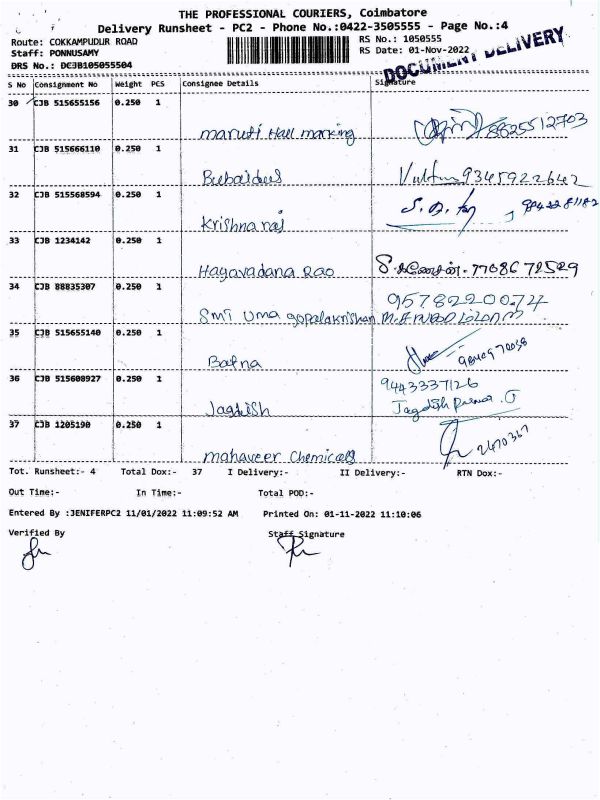 THE PROFESSIONAL COURIERS, Coimbatore
Delivery Runsheet - PC2 - Phone No.:0422-3505555 - Page No.:4
Route: COKKAMPUDUR ROAD
RS No.: 1050555
Staff: PONNUSAMY
RS Date: 01-Nov-2022
DRS No.: DCJB105055504
DOCUMENT DELIVERY
S No Consignment No Weight PCS Consignee Details Signature
30 CJB 515655156 0.250 1
maruti Hall marking 8825512703
31 CJB 515666110 0.250 1
9345922642
32 CJB 515568594 0.250 1
Krishna raj
33 CJB 1234142 0.250 1
Hayavadana Rao 7708672529
34 CJB 88835307 0.250 1
9578220074
Smt Uma gopalakrishan
35 CJB 515655140 0.250 1
Bafna
36 CJB 515608927 0.250 1
9443337126
Jagdish
37 CJB 1205190 0.250 1
mahaveer Chemicals 2470367
Tot. Runsheet:- 4 Total Dox:- 37 I Delivery:- II Delivery:- RTN Dox:-
Out Time:- In Time:- Total POD:-
Entered By :JENIFERPC2 11/01/2022 11:09:52 AM Printed On: 01-11-2022 11:10:06
Verified By Staff Signature